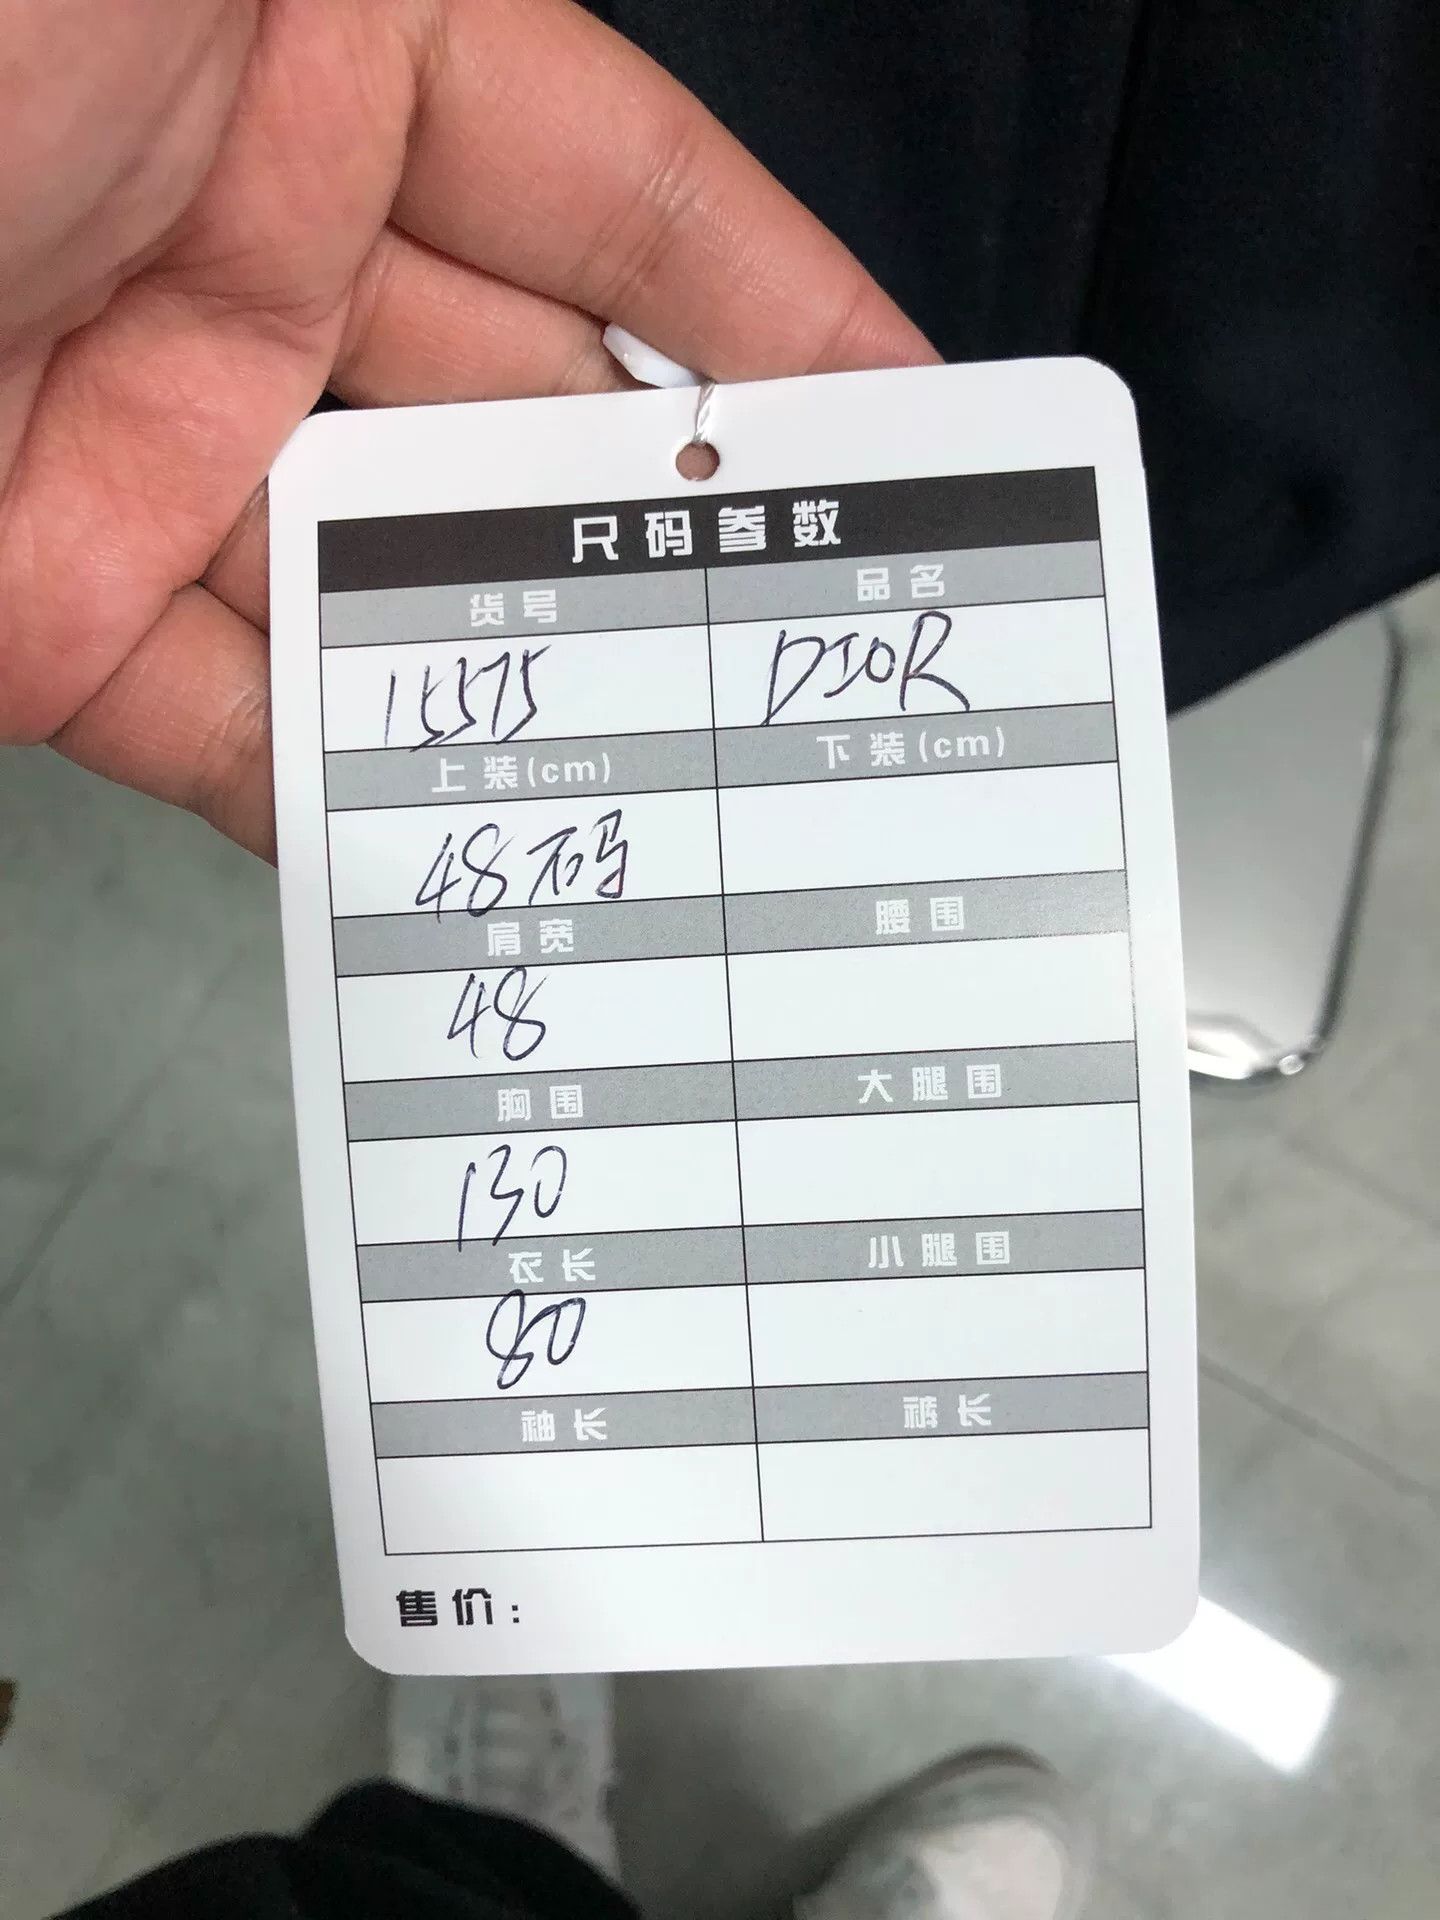 尺码参数
货号 品名
15575 DIOR
上装(cm) 下装(cm)
48码
肩宽 腰围
48
胸围 大腿围
130
衣长 小腿围
80
袖长 裤长
售价: